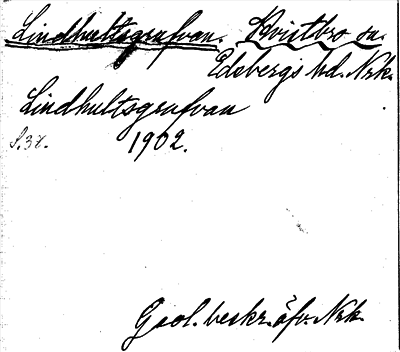 Lindhultsgrufvan. Kvistbro sn.
Edsbergs hd. Nrk.
Lindhultsgrufvan
S. 38. 1902.
Geol. beskr. öfv. Nrk.